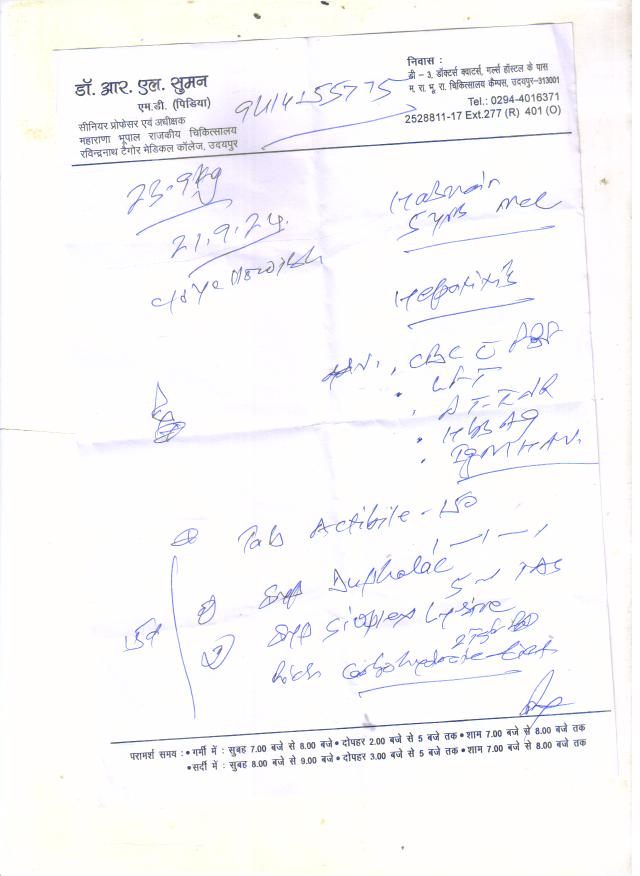 डॉ. आर. एल. सुमन
एम.डी. (पिडिया)
सीनियर प्रोफेसर एवं अधीक्षक
महाराणा भूपाल राजकीय चिकित्सालय
रविन्द्रनाथ टैगोर मेडिकल कॉलेज, उदयपुर
9414155775
निवास :
डी - 3, डॉक्टर्स क्वाटर्स, गर्ल्स हॉस्टल के पास
म. रा. भू. रा. चिकित्सालय कैम्पस, उदयपुर-313001
Tel.: 0294-4016371
2528811-17 Ext.277 (R) 401 (O)
23.9kg
21.9.24
5yrs
Hepatitis
CBC
LFT
HBsAg
IgM HAV
Tab Actibile-150
1-1-1
Syp Duphalac
5ml TDS
Syp Sioplex Lysine
Rich carbohydrate diet
परामर्श समय : • गर्मी में : सुबह 7.00 बजे से 8.00 बजे • दोपहर 2.00 से 5 बजे तक • शाम 7.00 बजे से 8.00 बजे तक
• सर्दी में : सुबह 8.00 बजे से 9.00 बजे • दोपहर 3.00 से 5 बजे तक • शाम 7.00 बजे से 8.00 बजे तक